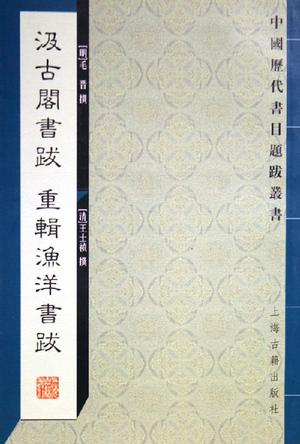 中國歷代書目題跋叢書
汲古閣書跋 重輯漁洋書跋
[明]毛 晋 撰
[清]王士禛 撰
上海古籍出版社